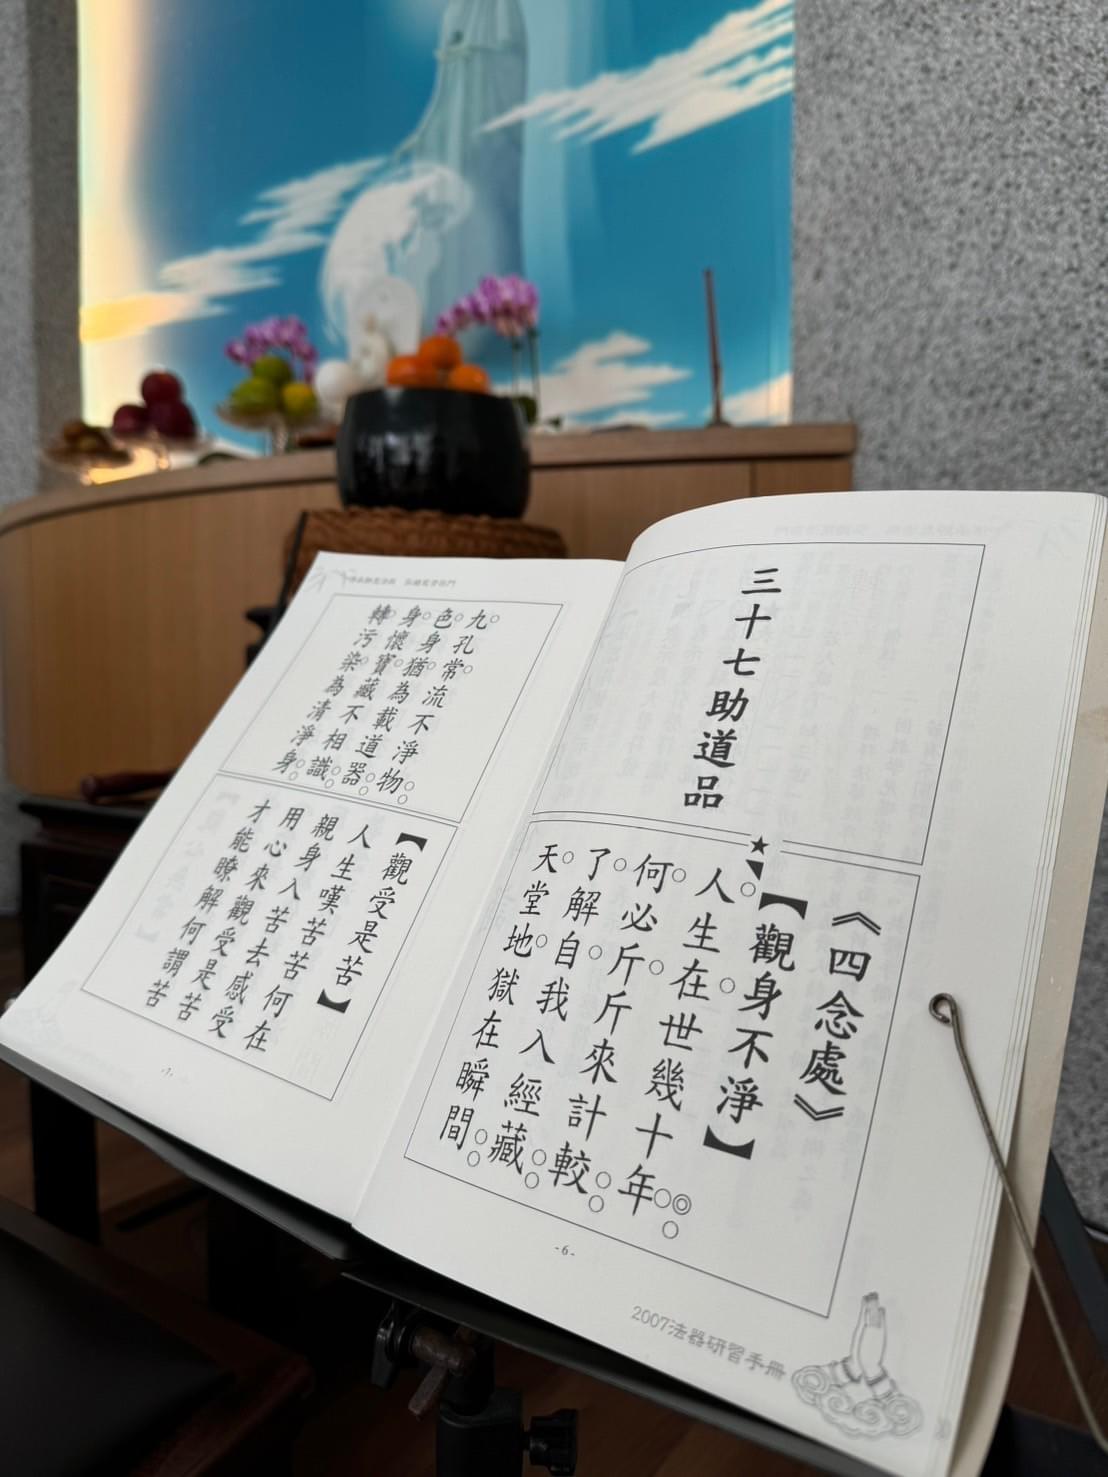 三十七助道品
《四念處》
【觀身不淨】
人生在世幾十年
何必斤斤來計較
了解自我入經藏
天堂地獄在瞬間
-6-
2007法器研習手冊
九孔常流不淨物
色身猶為載道器
身懷寶藏不相識
轉污染為清淨身
【觀受是苦】
人生嘆苦苦何在
親身入苦去感受
用心來觀受是苦
才能瞭解何謂苦
-7-